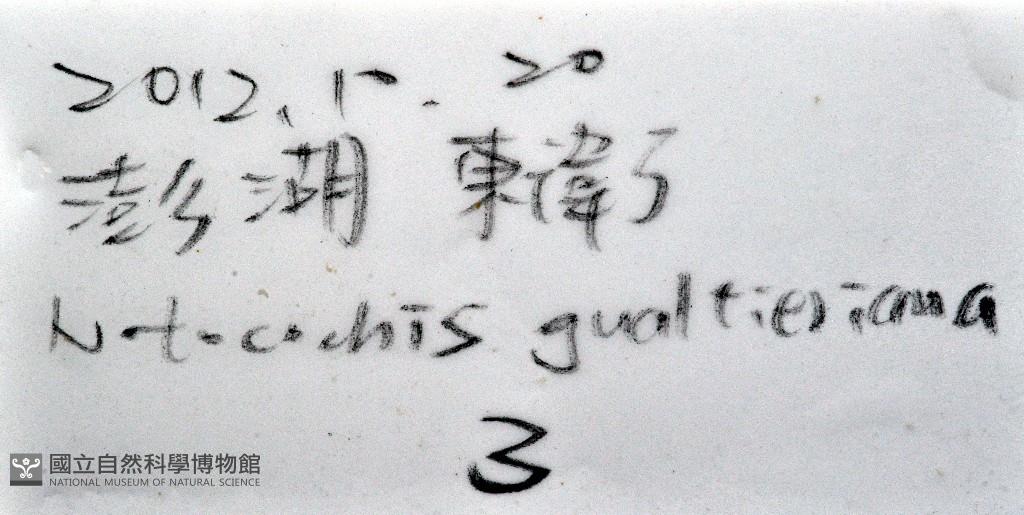 2012.10.20
澎湖 東衛
Notocochis gualtieriana
3
國立自然科學博物館
NATIONAL MUSEUM OF NATURAL SCIENCE